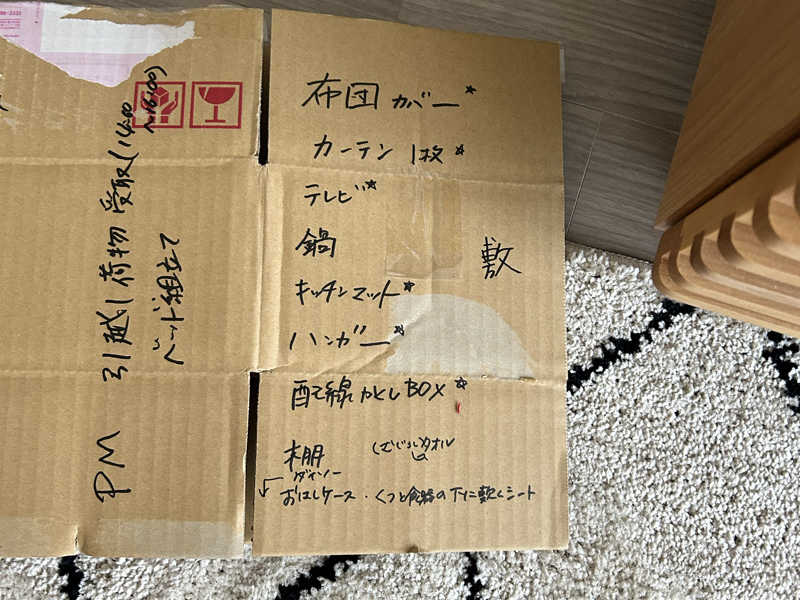 布団カバー☆
カーテン 1枚☆
テレビ☆
鍋
敷
キッチンマット☆
ハンガー☆
配線かくしBOX☆
棚
タオル
ダイソー
おはしケース・くつと食器の下に敷くシート
PM 引越し荷物 受取(14:00〜16:00)
ベッド組立て